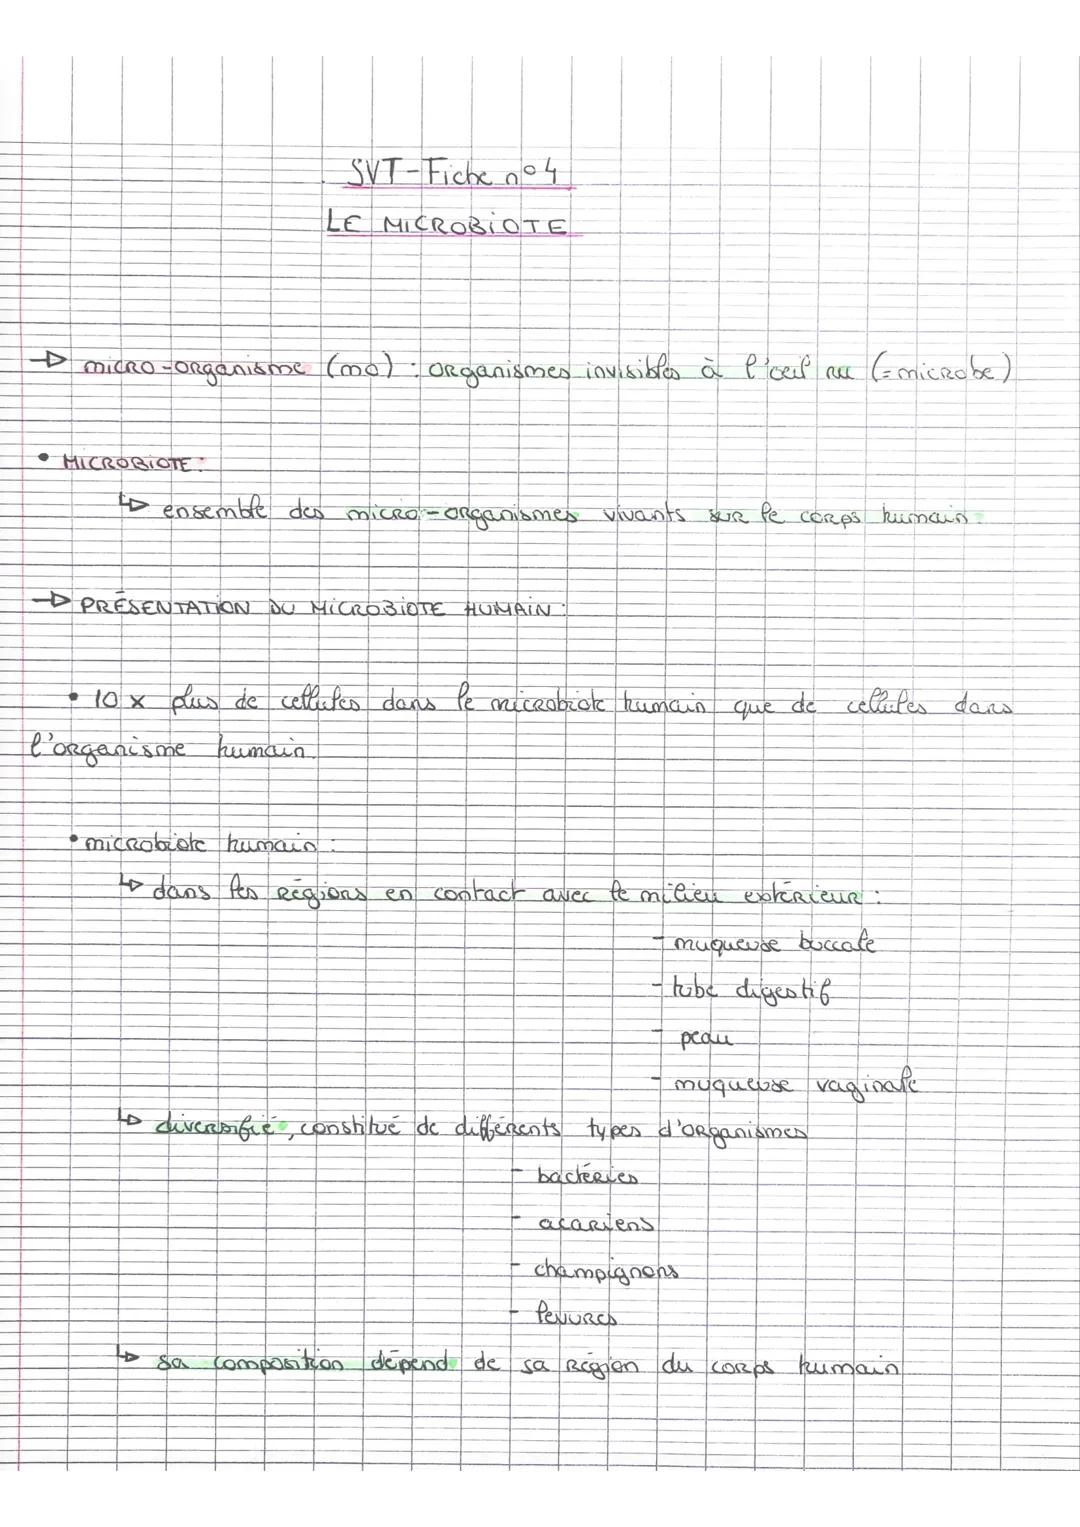 SVT-Fiche n°4
LE MICROBIOTE
→ micro-organisme (mo) : organismes invisibles à l'œil nu (=microbe)
• MICROBIOTE :
↳ ensemble des micro-organismes vivants sur le corps humain.
→ PRÉSENTATION DU MICROBIOTE HUMAIN :
• 10 x plus de cellules dans le microbiote humain que de cellules dans
l'organisme humain.
• microbiote humain :
↳ dans les régions en contact avec le milieu extérieur :
- muqueuse buccale
- tube digestif
- peau
- muqueuse vaginale
↳ diversifié, constitué de différents types d'organismes
- bactéries
- acariens
- champignons
- levures
↳ sa composition dépend de sa région du corps humain